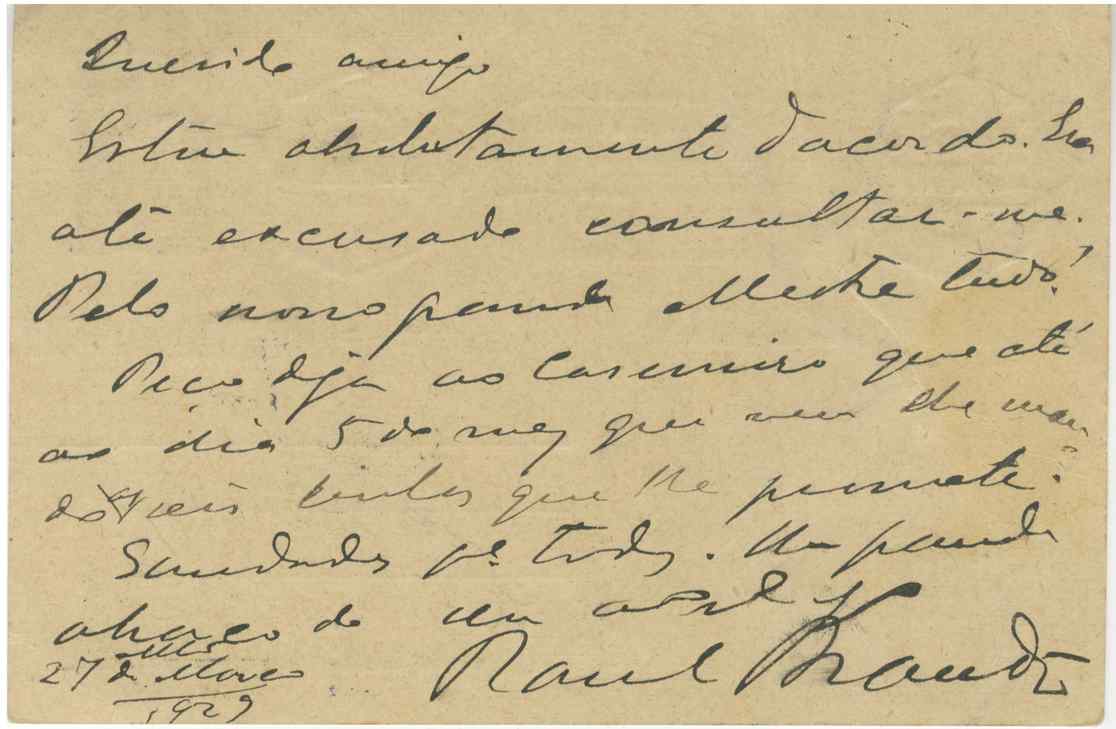 Querido amigo
Estou absolutamente d'acordo. Era
até excusado consultar-me.
Pelo nosso grande Mestre tudo!
Peço diga ao Casemiro que até
ao dia 5 do mez que vem lhe man-
do as linhas que lhe prometi.
Saudades pª todos. Um grande
abraço do seu
Raul Brandão
27 de Março
1929